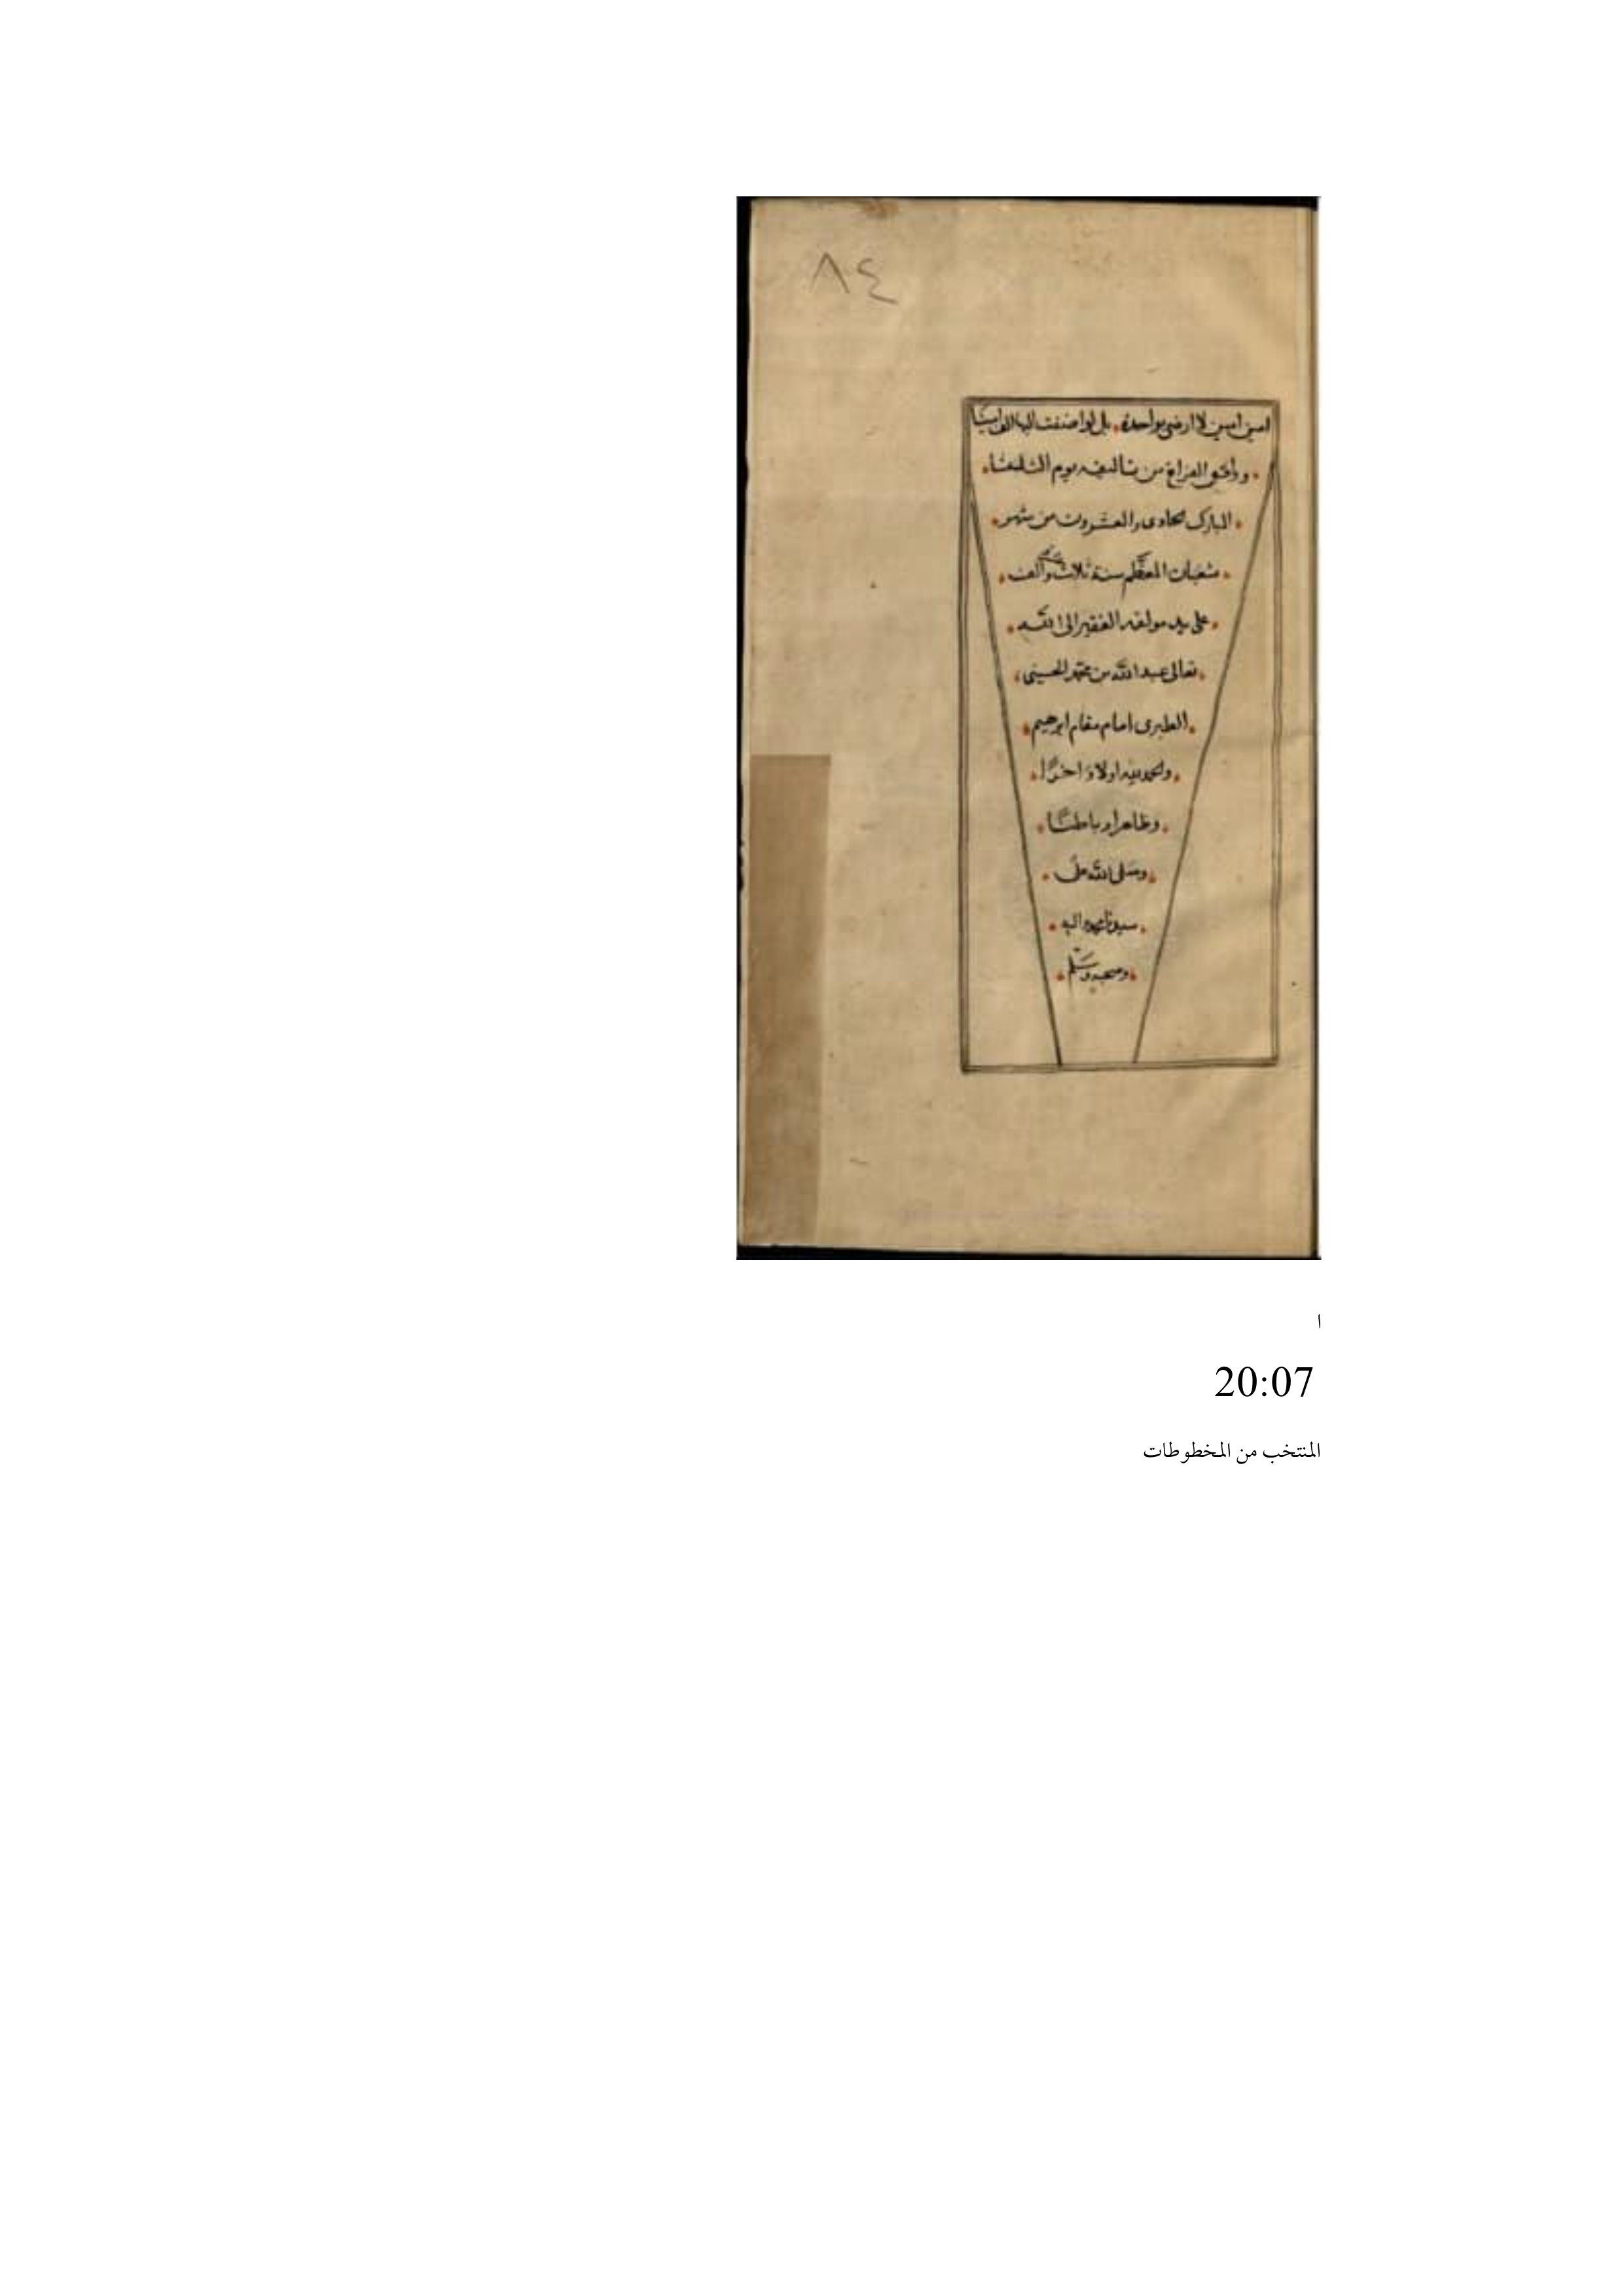 ٨٤
امين امين لا ارضى بواحدة بل لو اضفت اليها الف امينا
ووافق الفراغ من تاليفه يوم الثلثا
المبارك الحادى والعشرون من شهر
شعبان المعظم سنة ثلاث والف
على يد مولفه الفقير الى الله
تعالى عبد الله بن محمد الحسينى
الطبرى امام مقام ابرهيم
والحمد لله اولا واخرًا
وظاهرا وباطنًا
وصلى الله على
سيدنا محمد واله
وصحبه وسلم
ا
20:07
المنتخب من المخطوطات